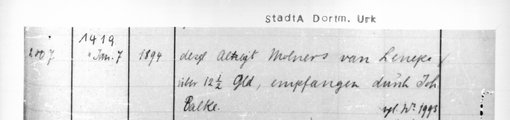 StadtA Dortm. Urk
1419
2007 Jan. 7 1894 desgl Albrecht Molners van Lenepe /
über 12½ Gld, empfangen durch Joh
Palke. vgl. Nr. 1993